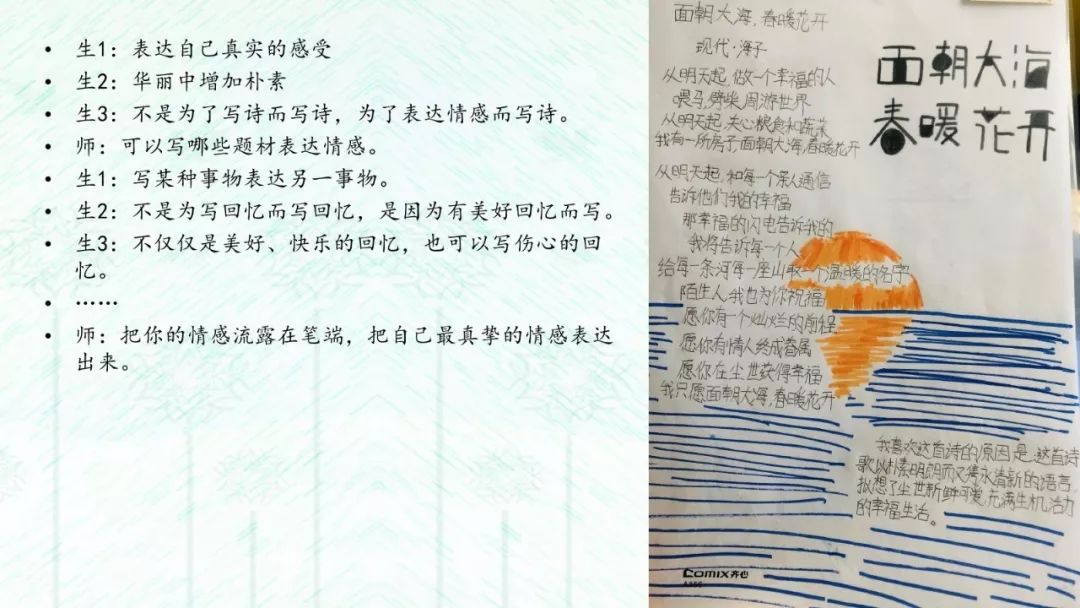 • 生1：表达自己真实的感受
• 生2：华丽中增加朴素
• 生3：不是为了写诗而写诗，为了表达情感而写诗。
• 师：可以写哪些题材表达情感。
• 生1：写某种事物表达另一事物。
• 生2：不是为写回忆而写回忆，是因为有美好回忆而写。
• 生3：不仅仅是美好、快乐的回忆，也可以写伤心的回
忆。
• ……
• 师：把你的情感流露在笔端，把自己最真挚的情感表达
出来。
面朝大海，春暖花开
现代·海子
从明天起，做一个幸福的人
喂马，劈柴，周游世界
从明天起，关心粮食和蔬菜
我有一所房子，面朝大海，春暖花开
从明天起，和每一个亲人通信
告诉他们我的幸福
那幸福的闪电告诉我的
我将告诉每一个人
给每一条河每一座山取一个温暖的名字
陌生人，我也为你祝福
愿你有一个灿烂的前程
愿你有情人终成眷属
愿你在尘世获得幸福
我只愿面朝大海，春暖花开
面朝大海
春暖花开
我喜欢这首诗的原因是，这首诗
歌以朴素明朗而又隽永清新的语言，
拟想了尘世新鲜可爱，充满生机活力
的幸福生活。
Comix齐心